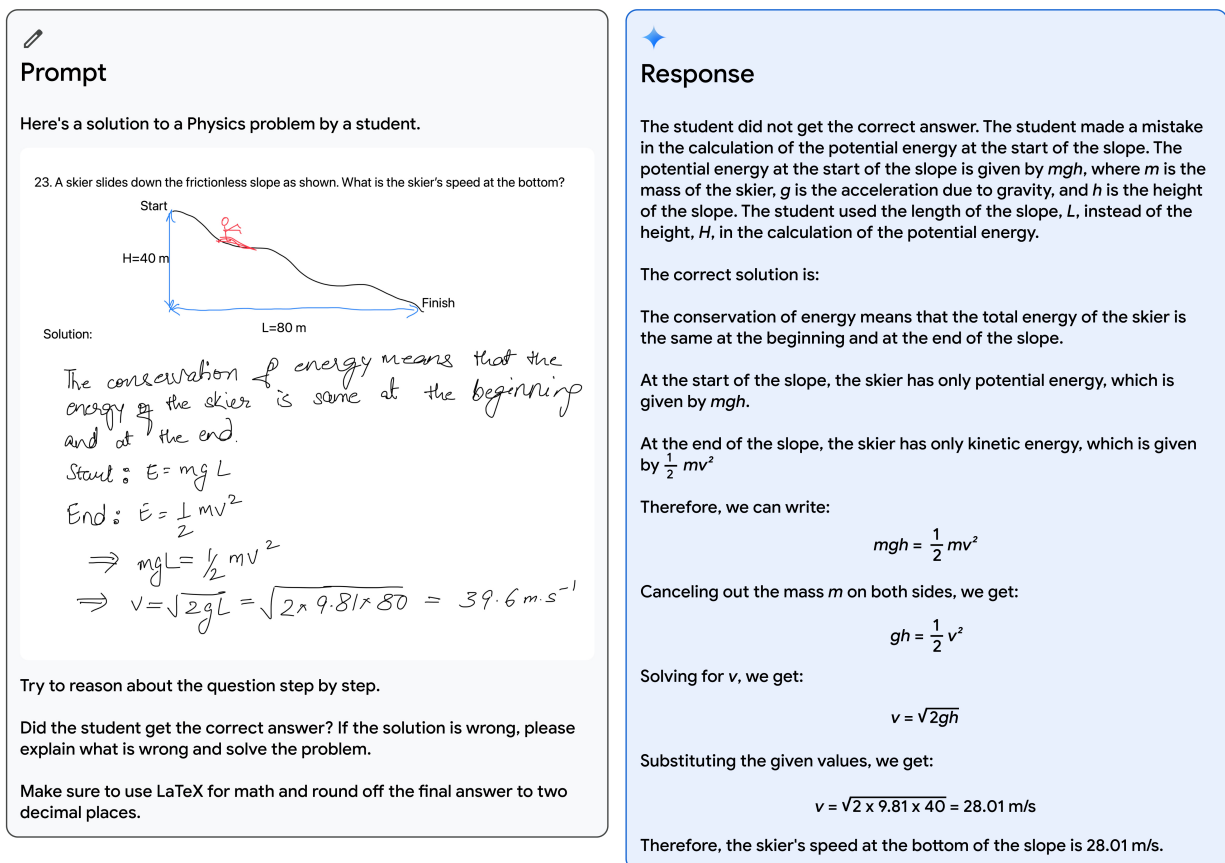 Prompt
Here's a solution to a Physics problem by a student.
23. A skier slides down the frictionless slope as shown. What is the skier's speed at the bottom?
Start
H=40 m
Finish
L=80 m
Solution:
The conservation of energy means that the
energy of the skier is same at the beginning
and at the end.
Start: E = mgL
End: E = 1/2 mv²
⇒ mgL = 1/2 mv²
⇒ v = √2gL = √2 × 9.81 × 80 = 39.6 m.s⁻¹
Try to reason about the question step by step.
Did the student get the correct answer? If the solution is wrong, please
explain what is wrong and solve the problem.
Make sure to use LaTeX for math and round off the final answer to two
decimal places.
Response
The student did not get the correct answer. The student made a mistake
in the calculation of the potential energy at the start of the slope. The
potential energy at the start of the slope is given by mgh, where m is the
mass of the skier, g is the acceleration due to gravity, and h is the height
of the slope. The student used the length of the slope, L, instead of the
height, H, in the calculation of the potential energy.
The correct solution is:
The conservation of energy means that the total energy of the skier is
the same at the beginning and at the end of the slope.
At the start of the slope, the skier has only potential energy, which is
given by mgh.
At the end of the slope, the skier has only kinetic energy, which is given
by 1/2 mv²
Therefore, we can write:
mgh = 1/2 mv²
Canceling out the mass m on both sides, we get:
gh = 1/2 v²
Solving for v, we get:
v = √2gh
Substituting the given values, we get:
v = √2 x 9.81 x 40 = 28.01 m/s
Therefore, the skier's speed at the bottom of the slope is 28.01 m/s.